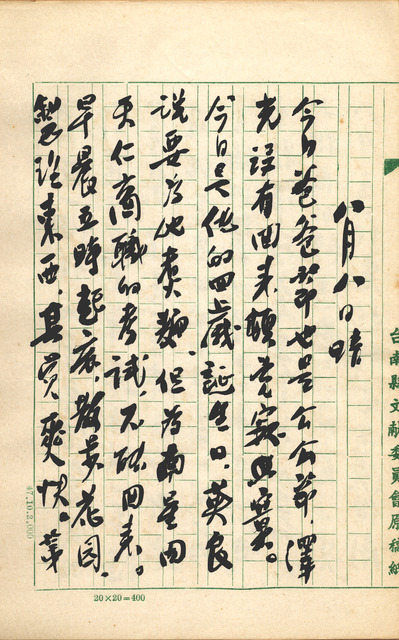 八月八日 晴
今日爸爸節也是公公節,澤
光沒有回來頗覺寂寞。
今日是他的四十一歲誕生日,英良
說要為他煮麵,但為南星回
天仁商職的考試,不能回來。
早晨五時起床,散步花園,
整理東西,甚覺爽快。
台南縣文獻委員會原稿紙
47.10.2,000
20×20=400